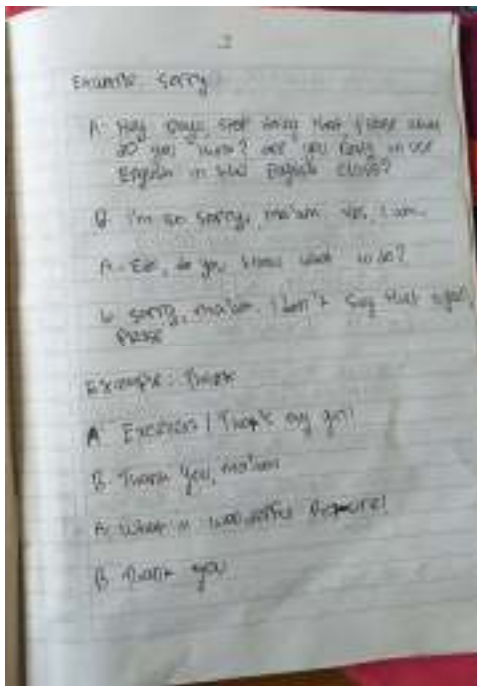 2
Example: Sorry
A. Hey, guys, stop doing that please what
do you think? are you ready to use
English in the English class?
B. I'm so sorry, ma'am. Yes, I am.
A. do you know what to do?
B. sorry, ma'am. I don't say that again,
please
Example: Thank
A. Excellent! That's my girl
B. Thank you, ma'am
A. What a wonderful picture!
B. Thank you